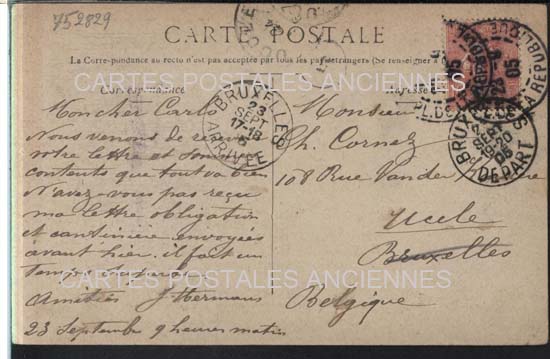 752829
CARTE POSTALE
La Correspondance au recto n'est pas acceptée par tous les pays étrangers (Se renseigner à
CARTES POSTALES ANCIENNES
Correspondance
Adresse
BRUXELLES
23
SEPT
17-18
ARRIVÉE
BRUXELLES
DÉPART
PL. DE LA RÉPUBLIQUE
05
Mon cher Carlo
Nous venons de recevoir
votre lettre et sommes
contents que tout va bien
N'avez-vous pas reçu
ma lettre obligation
et cantinière envoyées
avant hier. il fait un
temps superbe
Amitiés J Hermans
23 Septembre 9 heures matin
Monsieur
Ch. Cornez
108 Rue Vander
Uccle
Bruxelles
Belgique
CARTES POSTALES ANCIENNES